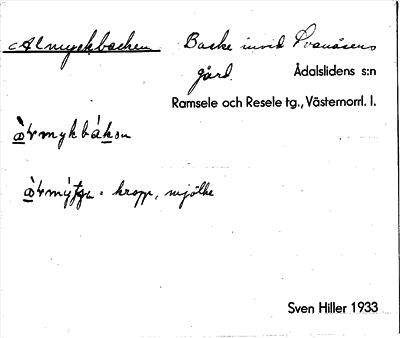 Almyckbacken Backe invid Svanåsens
gård. Ådalslidens s:n
Ramsele och Resele tg., Västernorrl. l.
= kropp, mjölke
Sven Hiller 1933